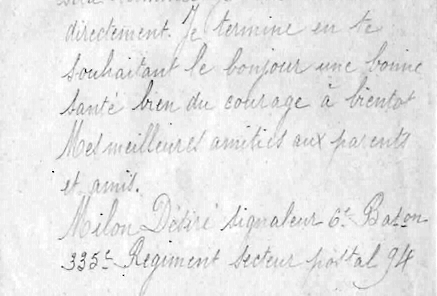 directement. Je termine en te
souhaitant le bonjour une bonne
santé bien du courage à bientot
Mes meilleures amitiés aux parents
et amis.
Milon Désiré signaleur 6e Baton
335e Regiment secteur postal 94